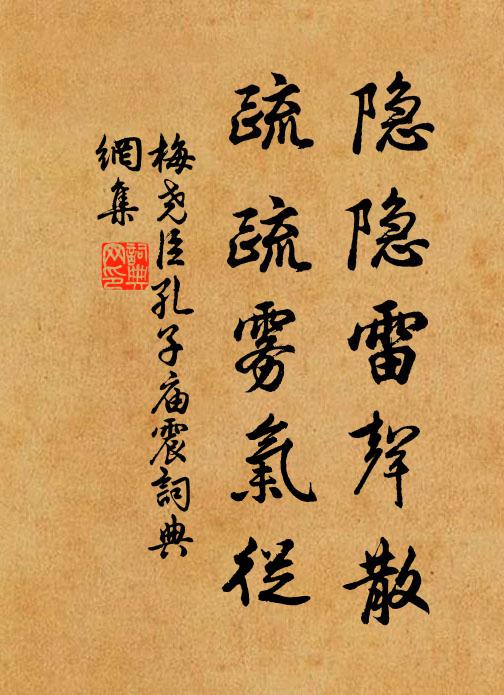 隐隐雷聲散
疏疏雾氣從
梅尧臣孔子庙震詞典
網集
詞典
网印